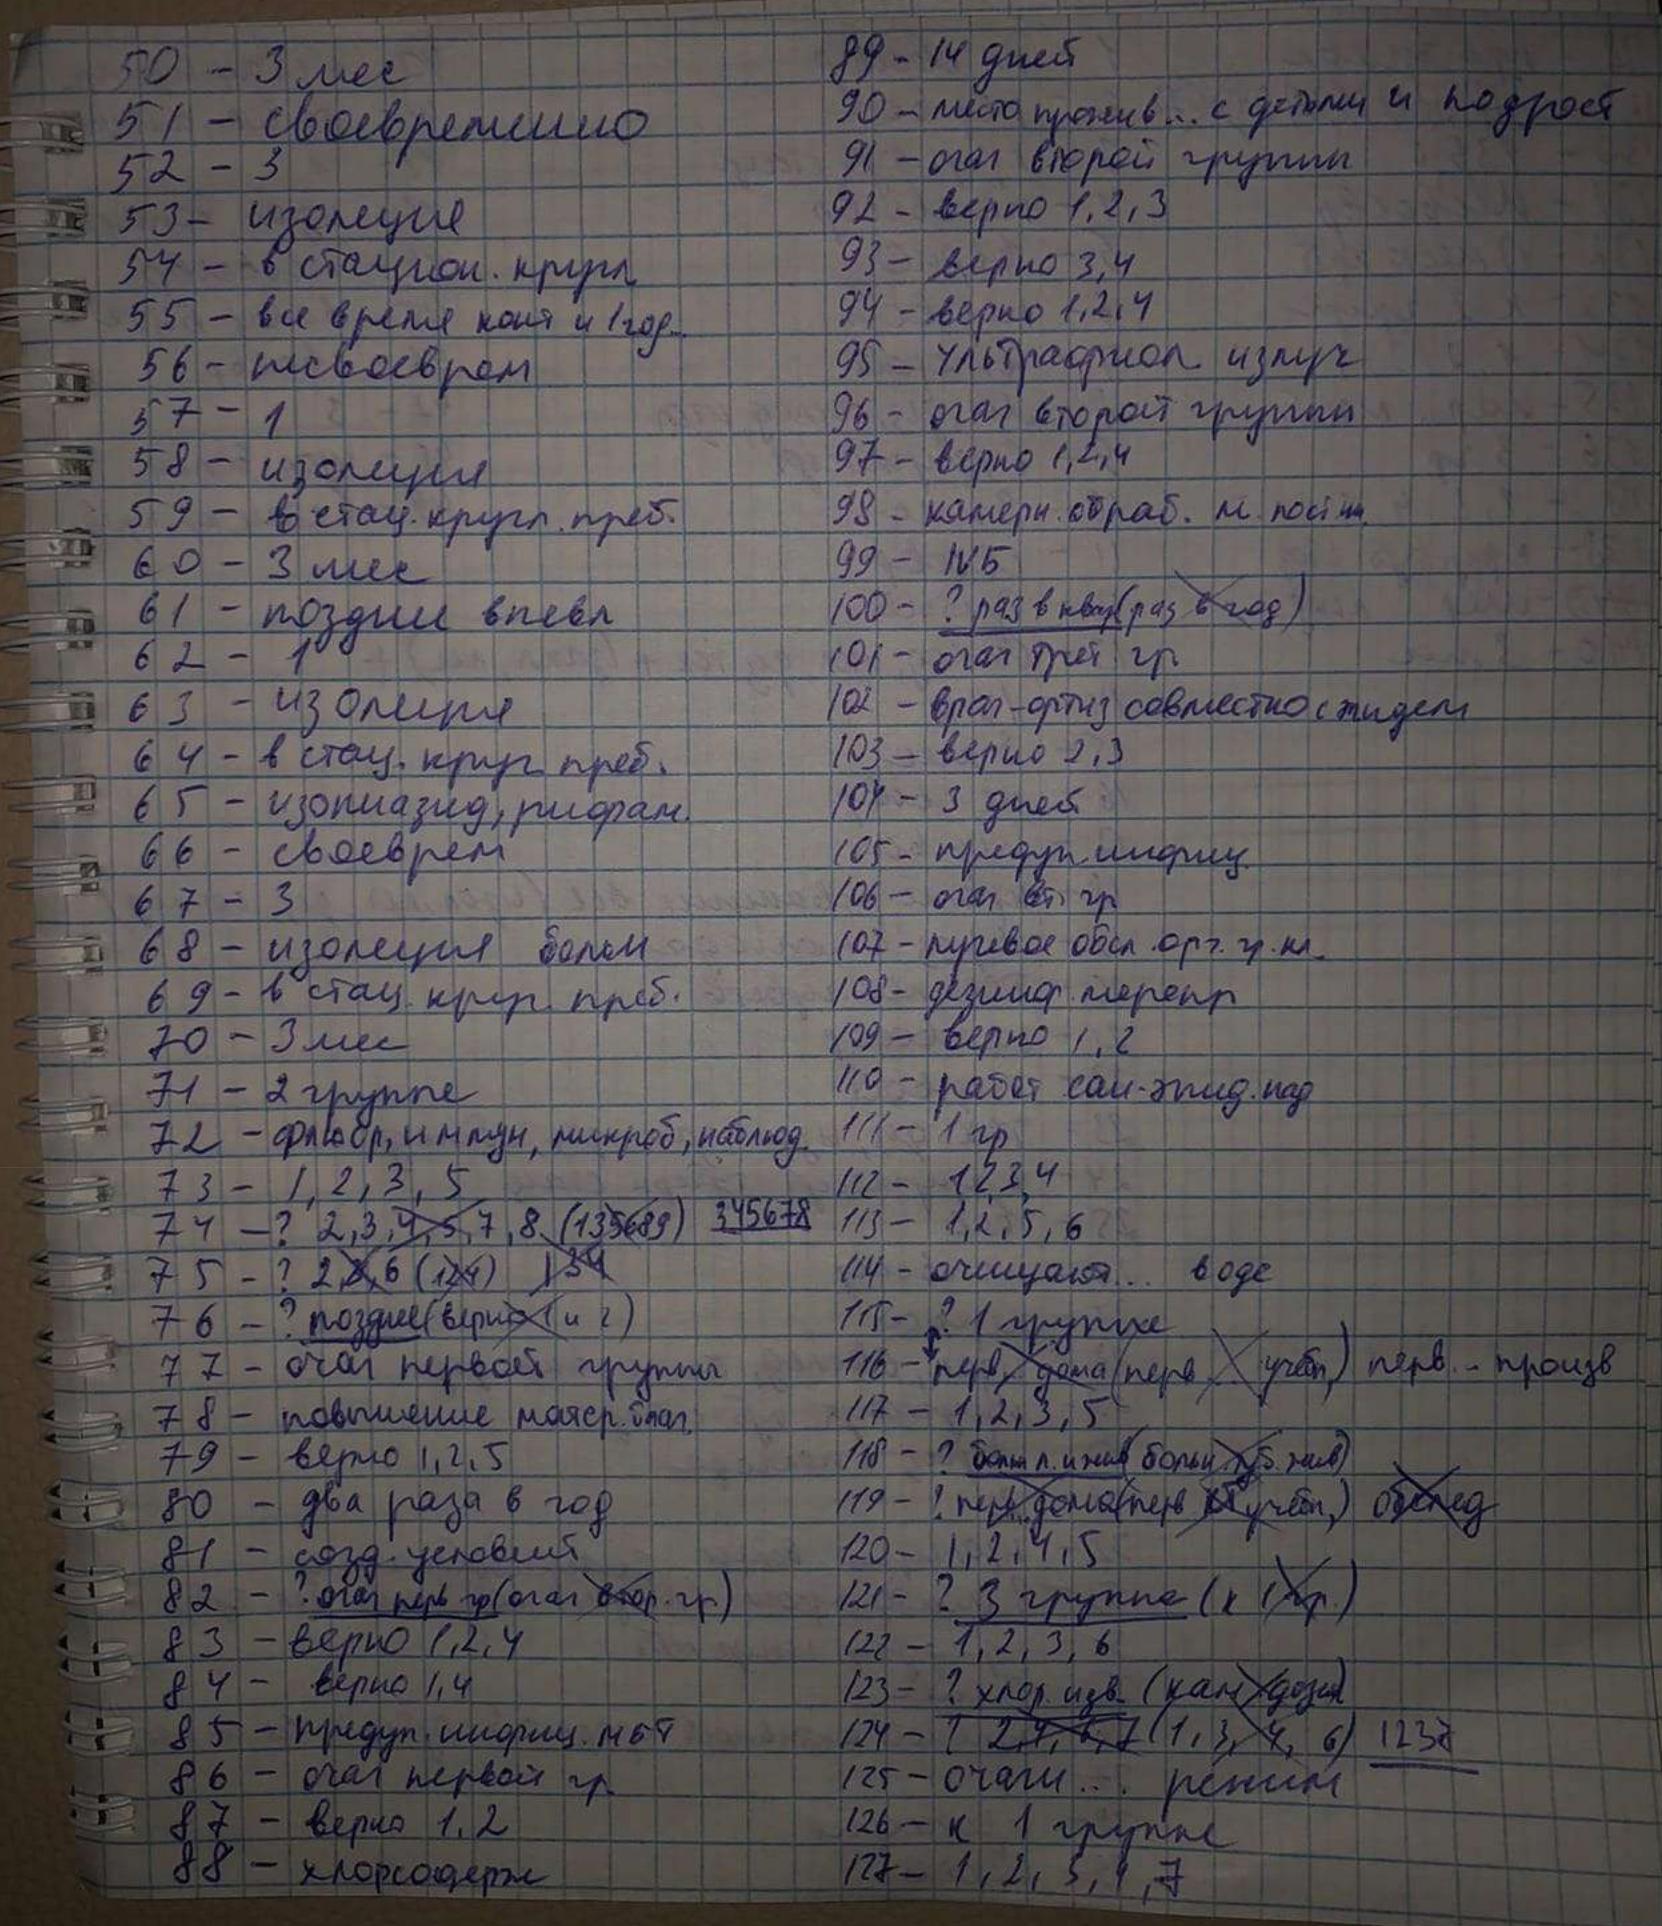 50 - 3 мес
51 - своевременно
52 - 3
53 - изоляция
54 - в стацион. кругл
55 - все время конт и 1 год...
56 - несвоеврем
57 - 1
58 - изоляция
59 - в стац. кругл. преб.
60 - 3 мес
61 - поздние впевл
62 - 1
63 - изоляция
64 - в стац. круг. преб.
65 - изониазид, рифам.
66 - своеврем
67 - 3
68 - изоляция больн
69 - в стац. круг. преб.
70 - 3 мес
71 - 2 группе
72 - флюор, иммун, микроб, наблюд.
73 - 1, 2, 3, 5
74 - ? 2, 3, 4, 5, 7, 8 (135689) 345678
75 - ? 2, 3, 6 (124) 134
76 - ? поздние (верно 1 и 2)
77 - очаг первой группы
78 - повышение матер. благ.
79 - верно 1, 2, 5
80 - два раза в год
81 - созд. условий
82 - ? очаг перв гр (очаг втор. гр)
83 - верно 1, 2, 4
84 - верно 1, 4
85 - предуп. инфиц. МБТ
86 - очаг первой гр.
87 - верно 1, 2
88 - хлорсодерж
89 - 14 дней
90 - место прожив... с детьми и подрост
91 - очаг второй группы
92 - верно 1, 2, 3
93 - верно 3, 4
94 - верно 1, 2, 4
95 - ультрафиол излуч
96 - очаг второй группы
97 - верно 1, 2, 4
98 - камерн. обраб. м. пост.
99 - IVБ
100 - ? раз в квар (раз в год)
101 - очаг трет. гр.
102 - врач-фтиз совместно с эпидем
103 - верно 2, 3
104 - 3 дней
105 - предуп. инфиц.
106 - очаг вт. гр
107 - лучевое обсл. орг. гр. кл.
108 - дезинф. меропр
109 - верно 1, 2
110 - работ сан-эпид. над
111 - 1 гр
112 - 1 2 3, 4
113 - 1, 2, 5, 6
114 - очищают... воде
115 - ? 1 группе
116 - перв, дома (перв учёт,) перв. - произв
117 - 1, 2, 3, 5
118 - ? больн л. и жив (больн туб. жив)
119 - ? перв. дома (перв учёт,) обслед
120 - 1, 2, 4, 5
121 - ? 3 группе (к 1 гр.)
122 - 1, 2, 3, 6
123 - ? хлор. изв. (кам дези)
124 - ? 2, 4, 6, 7 (1, 3, 4, 6) 1237
125 - очаги... режим
126 - к 1 группе
127 - 1, 2, 3, 4, 7